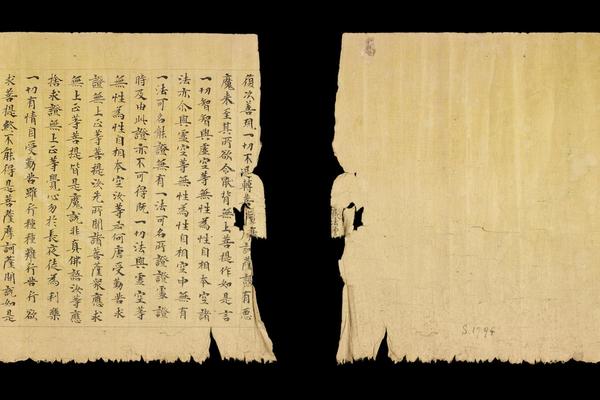 復次善現一切不退轉菩薩設有惡
魔來至其所欲令猒背無上菩提作如是言
一切智智與虛空等無性為性自相本空諸
法亦尒與虛空等無性為性自相空中無有
一法可名能證無有一法可名所證證處證
時及由此證亦不可得既一切法與虛空等
無性為性自相本空汝等云何唐受勤苦求
證無上正等菩提汝先所聞諸菩薩眾應求
無上正等菩提皆是魔說非真佛語汝等應
捨求證無上正等覺心勿於長夜徒為利樂
一切有情自受勤苦雖行種種難行苦行欲
求菩提終不能得是菩薩摩訶薩聞說如是
S.1794